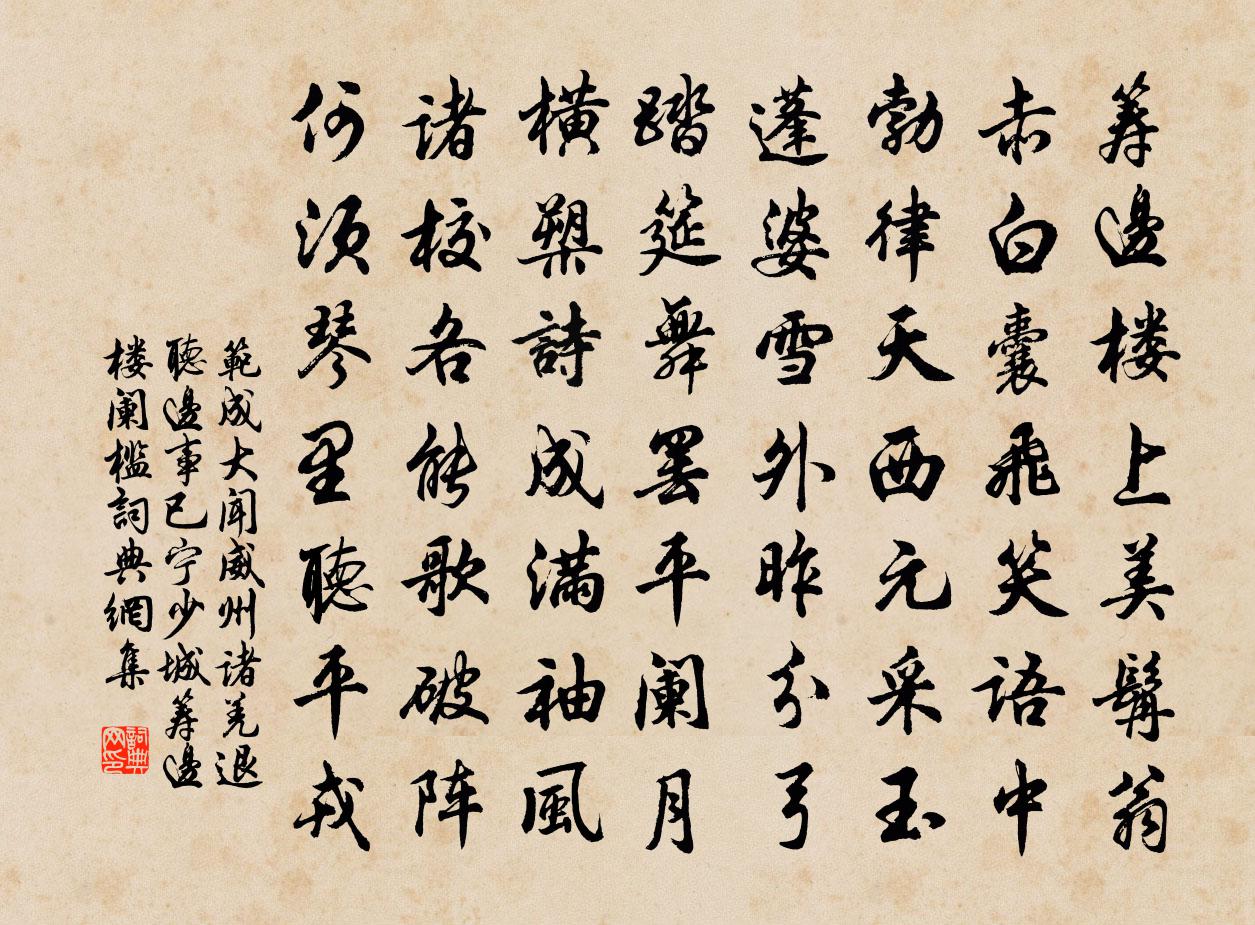 筹邊楼上美髯翁
赤白囊飛笑語中
勃律天西元采玉
蓬婆雪外昨分弓
踏筵舞罢平阑月
横槊詩成满袖風
诸校各能歌破阵
何须琴里聽平戎
範成大闻威州诸羌退
聽邊事已宁少城筹邊
楼阑槛詞典網集
詞典網印